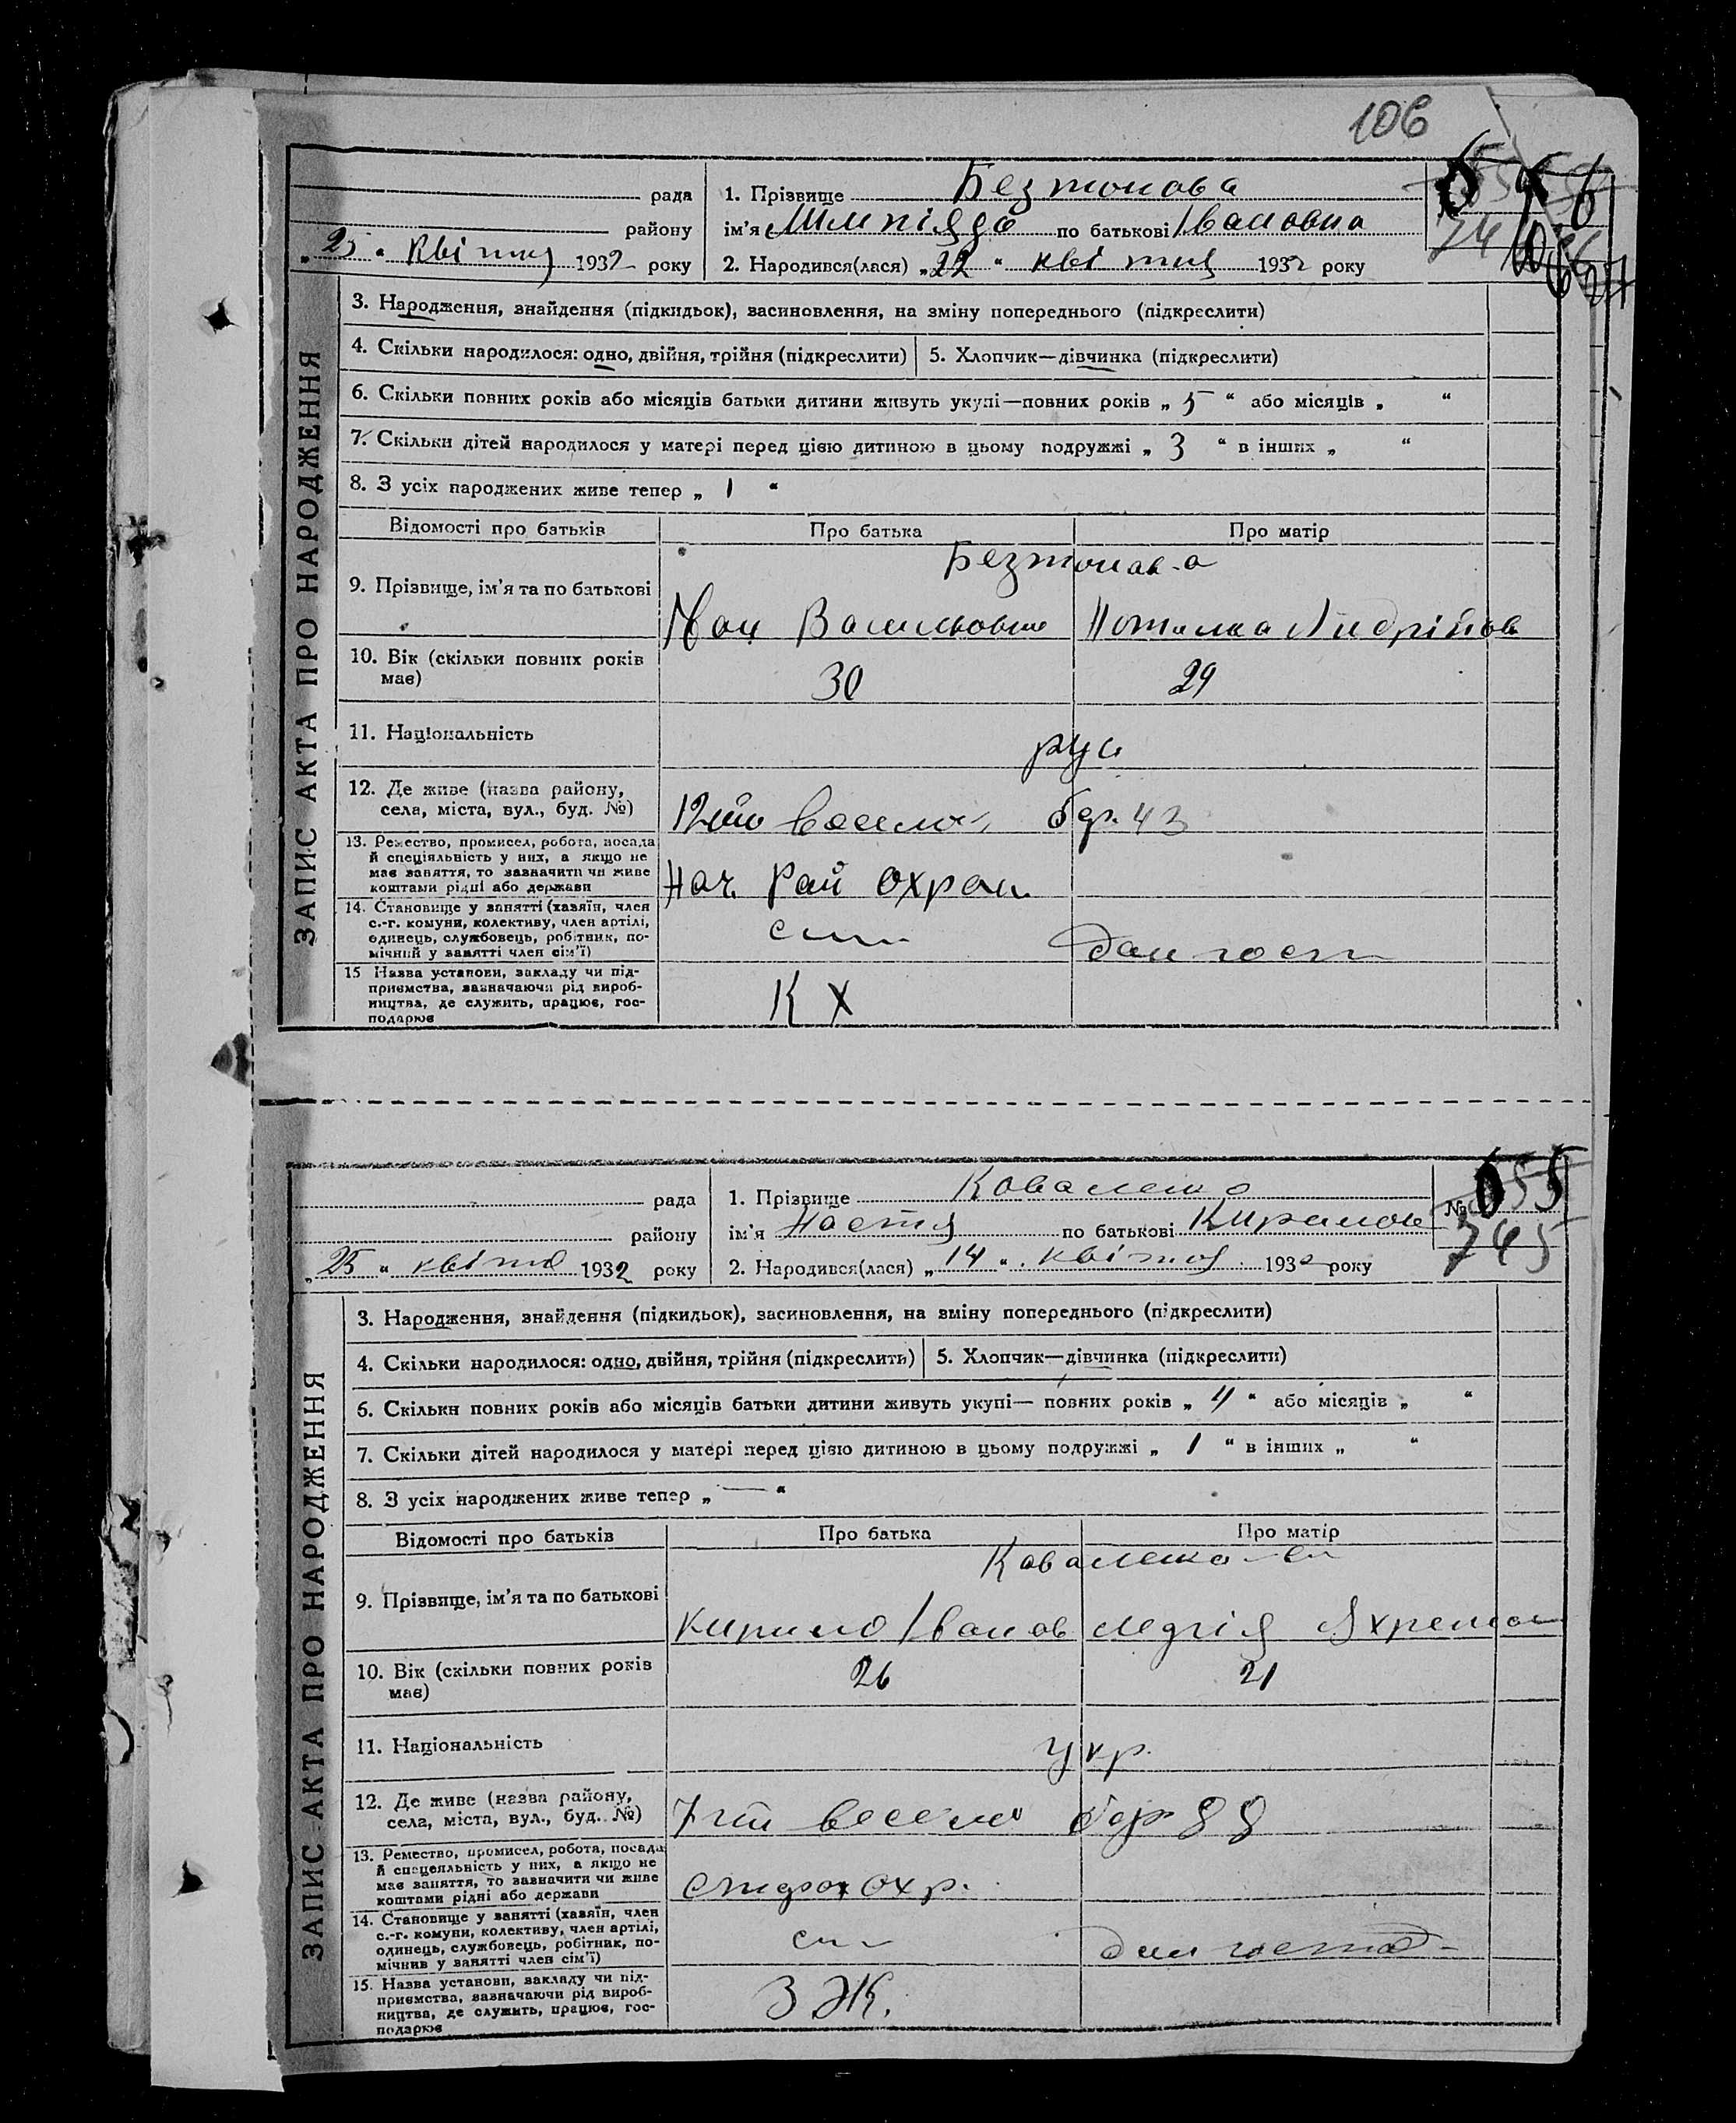 106
рада
району
„ 25 “ квітня 1932 року
1. Прізвище Безтонова
ім'я по батькові Івановна
2. Народився(лася) „ 22 “ квітня 1932 року
ЗАПИС АКТА ПРО НАРОДЖЕННЯ
3. Народження, знайдення (підкидьок), васиновлення, на зміну попереднього (підкреслити)
4. Скільки народилося: одно, двійня, трійня (підкреслити) 5. Хлопчик—дівчинка (підкреслити)
6. Скільки повних років або місяців батьки дитини живуть укупі—повних років „ 5 “ або місяців „ “
7. Скільки дітей народилося у матері перед цією дитиною в цьому подружжі „ 3 “ в інших „ “
8. З усіх народжених живе тепер „ 1 “
Відомості про батьків Про батька Про матір
Безтонов-а
9. Прізвище, ім'я та по батькові
Іван Васильович Наталка Андріївна
10. Вік (скільки повних років має) 30 29
11. Національність рус
12. Де живе (назва району, села, міста, вул., буд. №) 12 бдр. 43
13. Ремество, промисел, робота, посада й спеціяльність у них, а якщо не має заняття, то зазначити чи живе коштами рідні або держави
Нач. Рай охрон
14. Становище у занятті (хазяїн, член с.-г. комуни, колективу, член артілі, одинець, службовець, робітник, помічний у занятті член сім'ї)
15 Назва установи, закладу чи підприємства, зазначаючи рід виробництва, де служить, працює, господарює
К Х
рада
району
„ 25 “ квітня 1932 року
1. Прізвище Коваленко
ім'я Настя по батькові Кирилов
2. Народився(лася) „ 14 “ квітня 1932 року
№ 655
745
ЗАПИС АКТА ПРО НАРОДЖЕННЯ
3. Народження, знайдення (підкидьок), засиновлення, на зміну попереднього (підкреслити)
4. Скільки народилося: одно, двійня, трійня (підкреслить) 5. Хлопчик—дівчинка (підкреслити)
6. Скільки повних років або місяців батьки дитини живуть укупі— повних років „ 4 “ або місяців „ “
7. Скільки дітей народилося у матері перед цією дитиною в цьому подружжі „ 1 “ в інших „ “
8. З усіх народжених живе тепер „ — “
Відомості про батьків Про батька Про матір
Коваленко
9. Прізвище, ім'я та по батькові
Кирило Іванов
10. Вік (скільки повних років має) 26 21
11. Національність укр.
12. Де живе (назва району, села, міста, вул., буд. №) 7 бдр 88
13. Ремество, промисел, робота, посада й спецеяльність у них, а якщо не має заняття, то зазначити чи живе коштами рідні або держави
охр.
14. Становище у занятті (хазяїн, член с.-г. комуни, колективу, член артілі, одинець, службовець, робітник, помічний у занятті член сім'ї)
15. Назва установи, закладу чи підприємства, зазначаючи рід виробництва, де служить, працює, господарює
З ЖК.